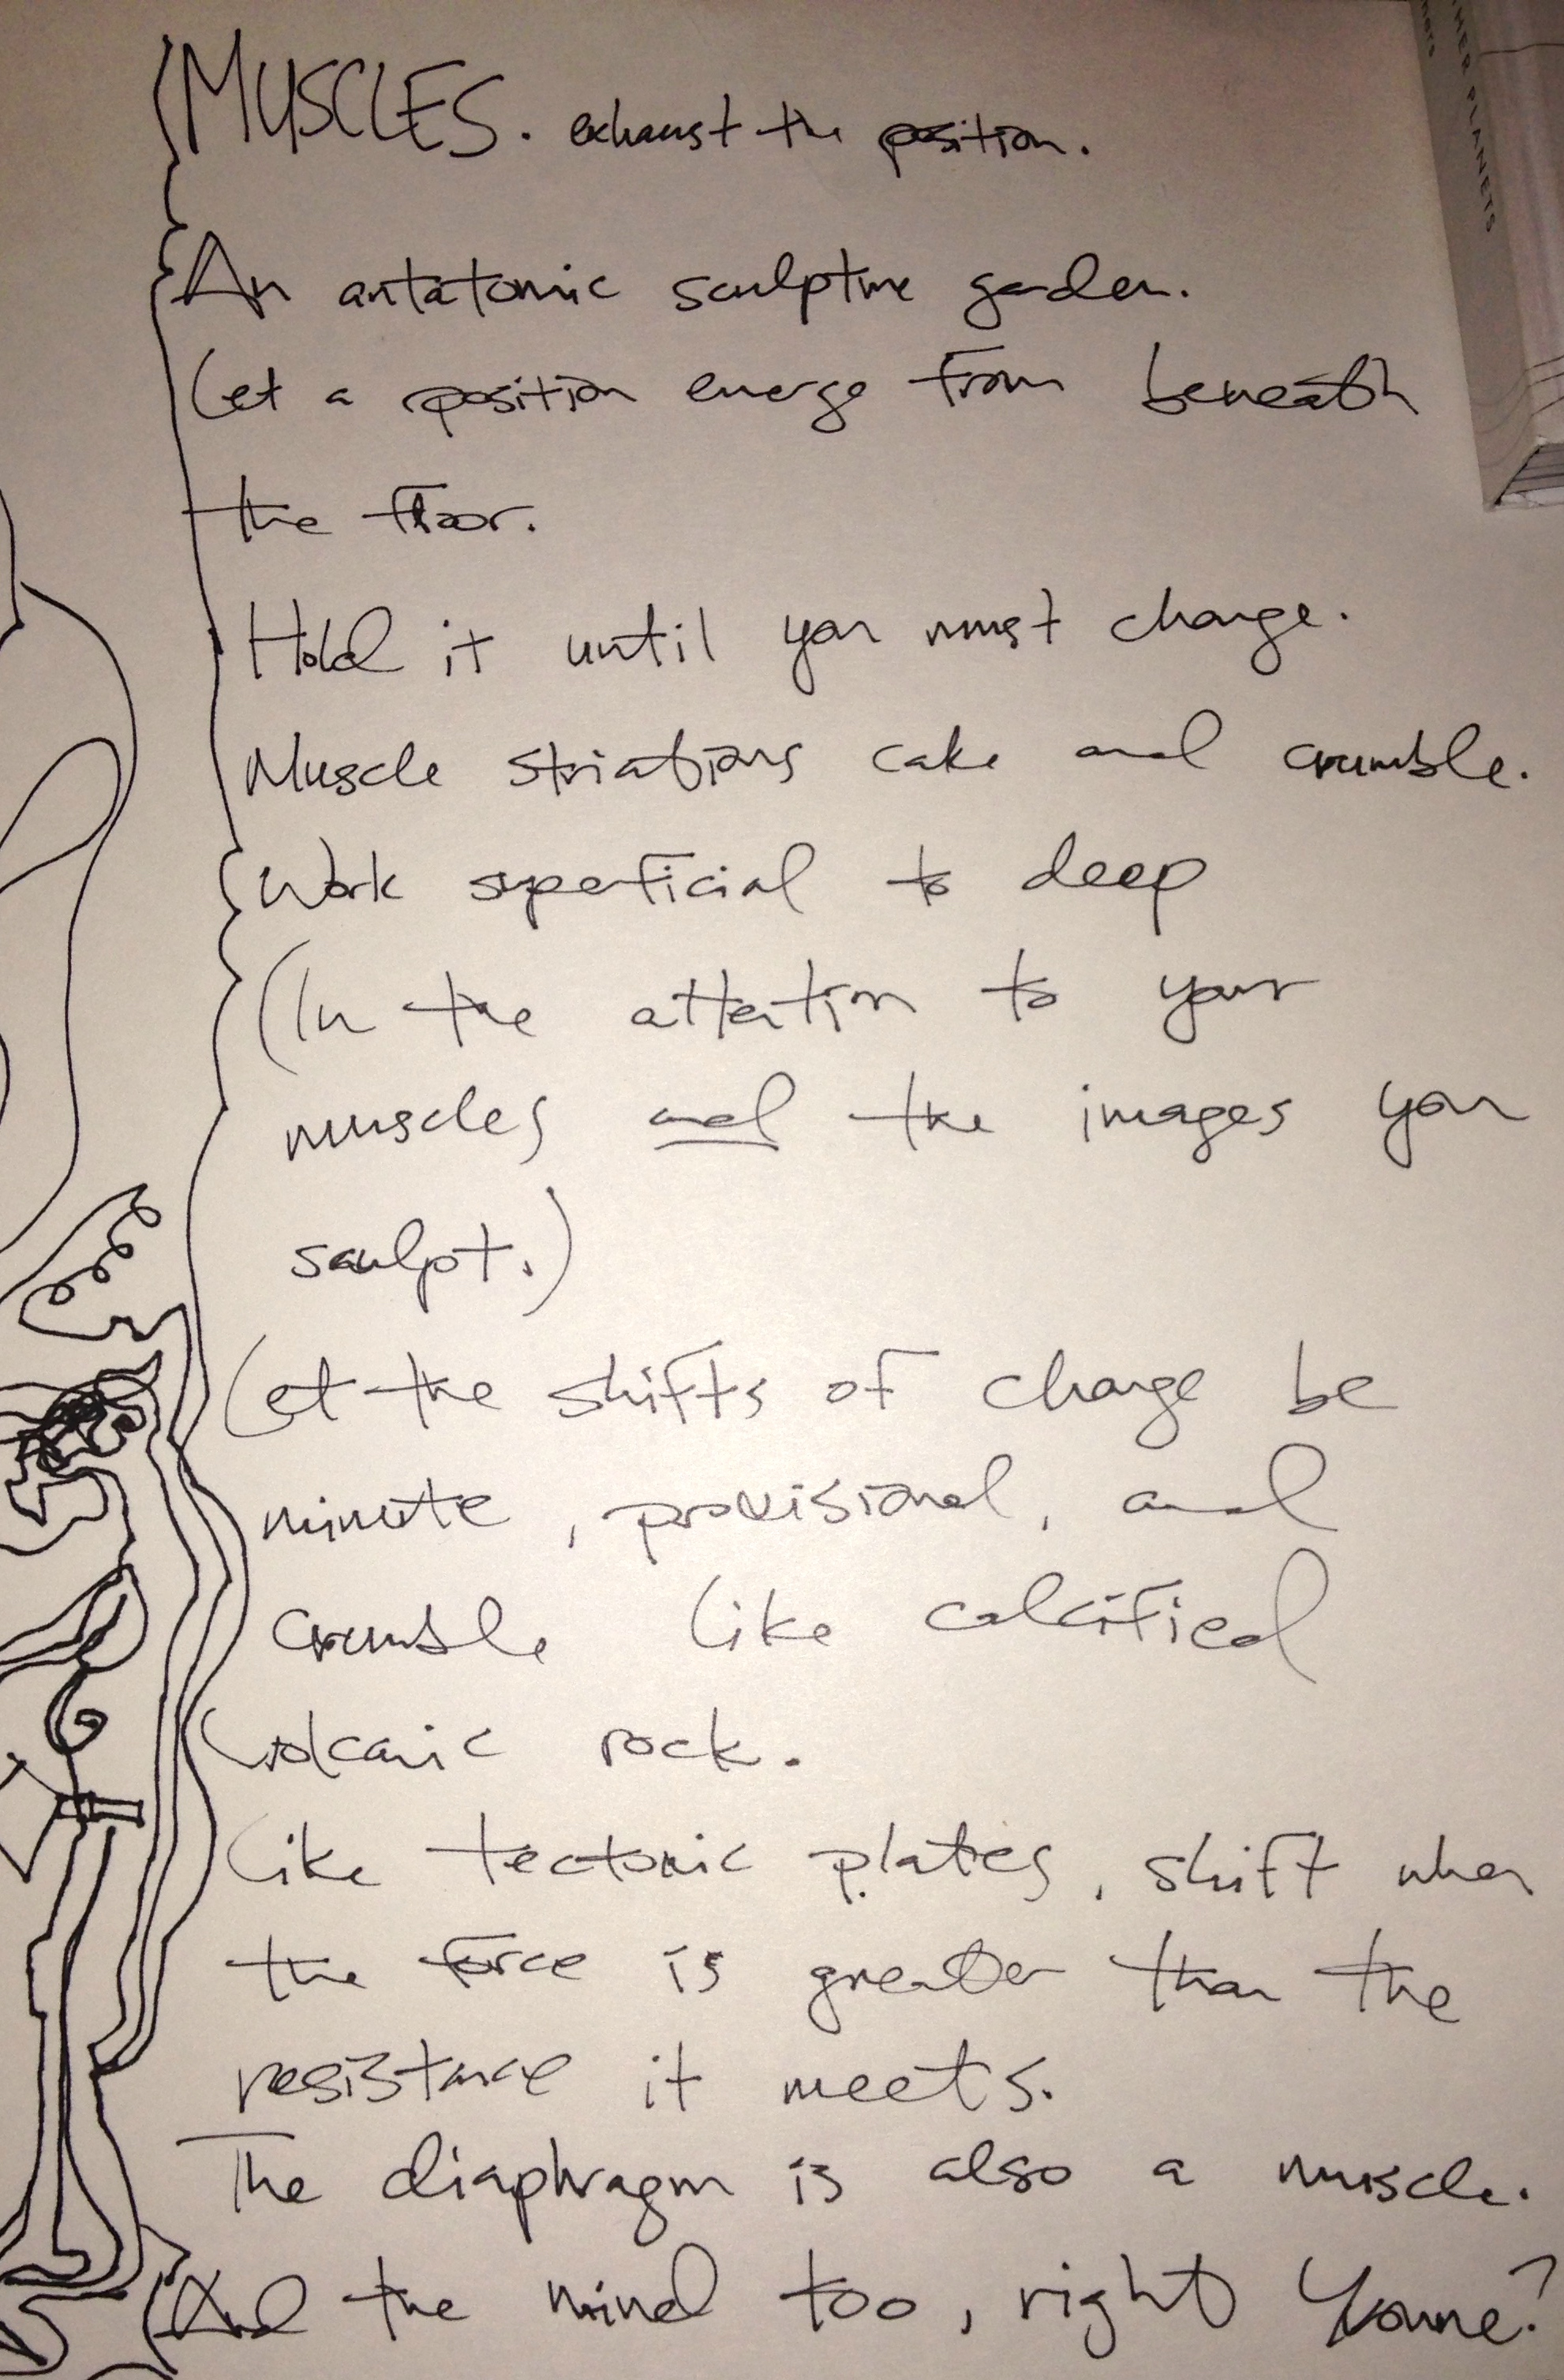 MUSCLES. exhaust the position.
An antatomic sculpture garden.
Let a position emerge from beneath
the floor.
Hold it until you must change.
Muscle striations cake and crumble.
Work superficial to deep
(In the attention to your
muscles and the images you
sculpt.)
Let the shifts of change be
minute, provisional, and
crumble like calcified
volcanic rock.
Like tectonic plates, shift when
the force is greater than the
resistance it meets.
The diaphragm is also a muscle.
And the mind too, right Yvonne?
PLANETS